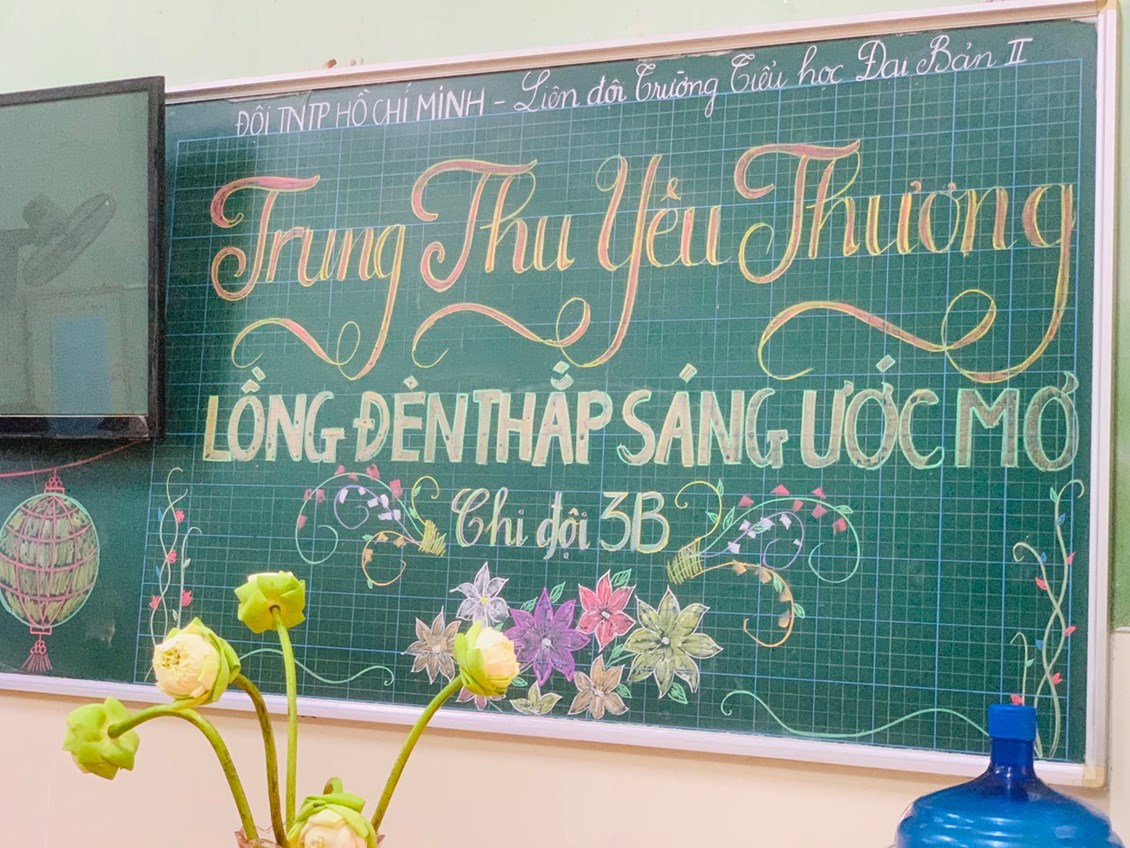 ĐỘI TNTP HỒ CHÍ MINH - Liên đội Trường Tiểu học Đại Bản II
Trung Thu Yêu Thương
LỒNG ĐÈN THẮP SÁNG ƯỚC MƠ
Chi đội 3B